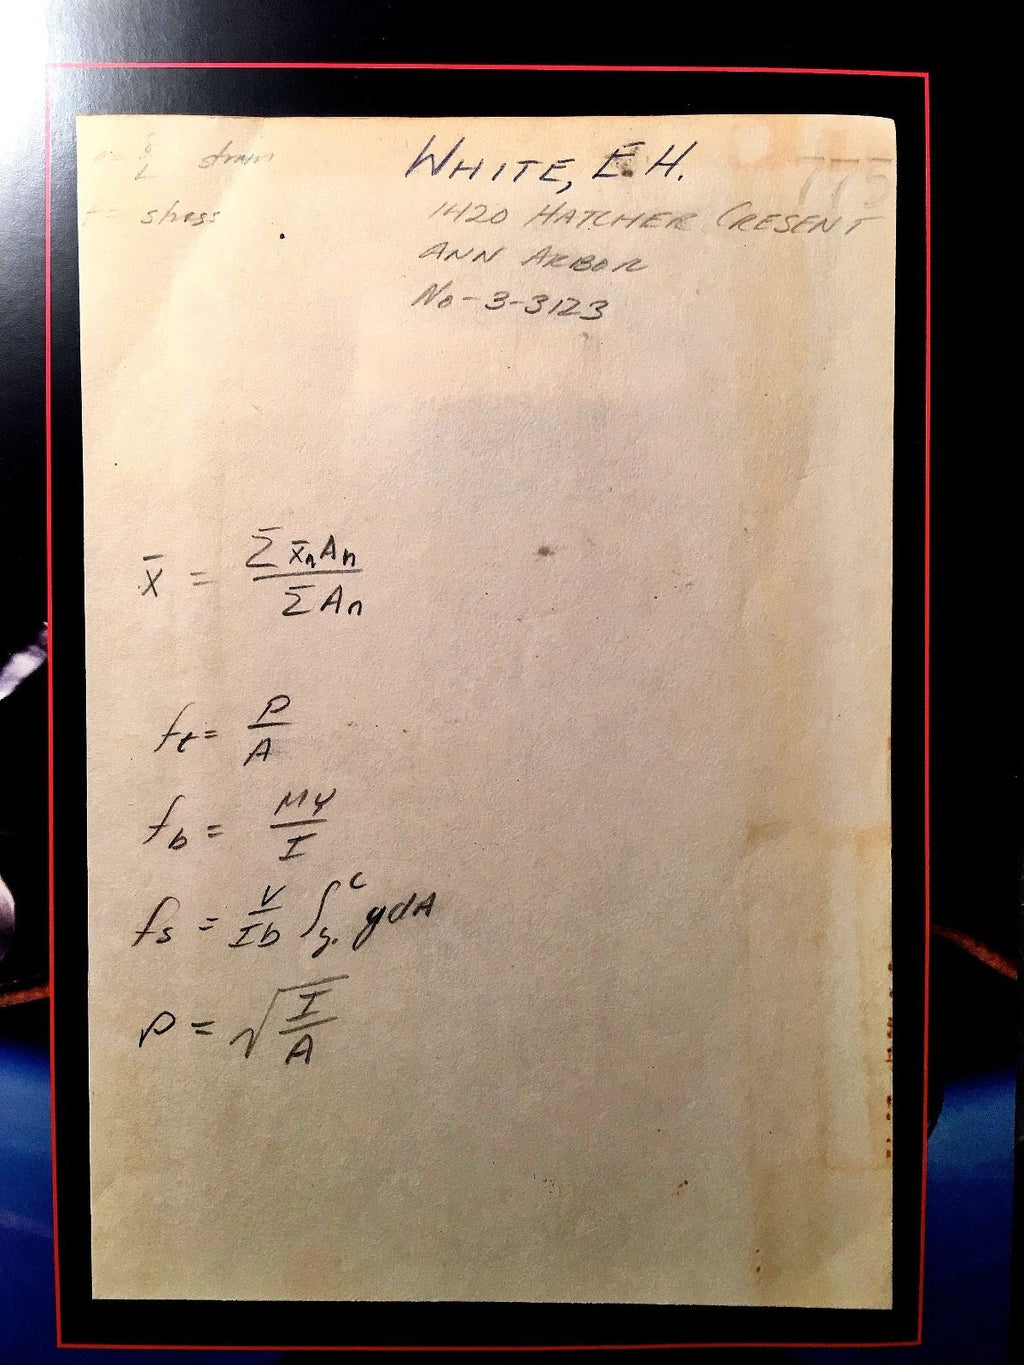 e = δ/L strain
f = stress
WHITE, E.H.
775
1420 HATCHER CRESENT
ANN ARBOR
No-3-3123
x̄ = Σ x̄ₙAₙ / Σ Aₙ
fₜ = P/A
f_b = My/I
fs = V/Ib ∫_y₁^c ydA
ρ = √(I/A)